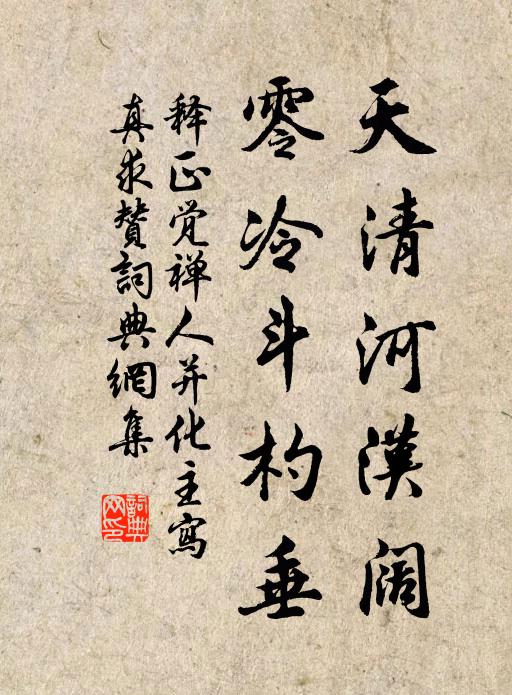 天清河漢阔
零冷斗杓垂
释正觉禅人并化主寫
真求赞詞典網集
詞典网印